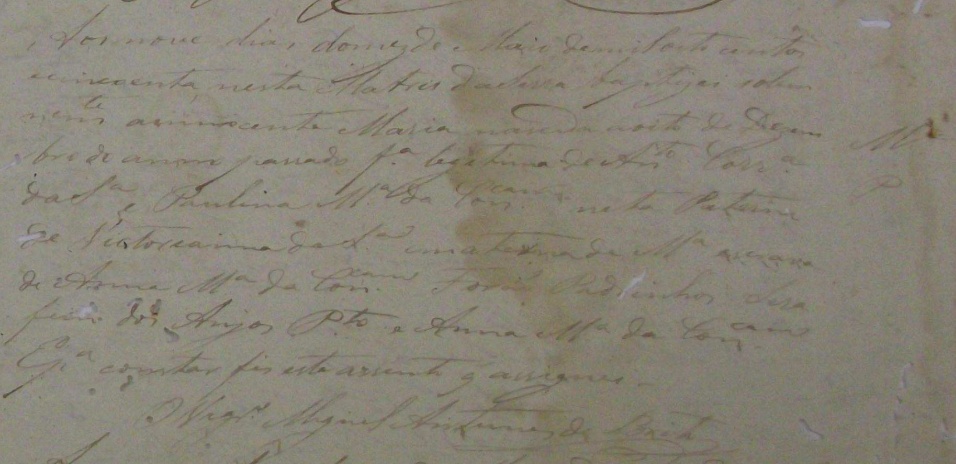 Aos nove dias do mez de Maio de mil oito centos
e cincoenta nesta Matris da baptizei solem
nem.te a innocente Maria nascida a oito de Dezem M.a
bro de anno passado f.a legitima de Ant.o Corr.a P
da S.a e Paulina M.a da Con.cam neta Paterna
de Victoreanna da S.a e materna de M.a escrava
de Anna M.a da Con.cam Foram Padrinhos Sera
fim dos Anjos P.to e Anna M.a da Con.cam
E p.a constar fis este assento q assignei.
O Vigr.o Miguel Antunes de Brito